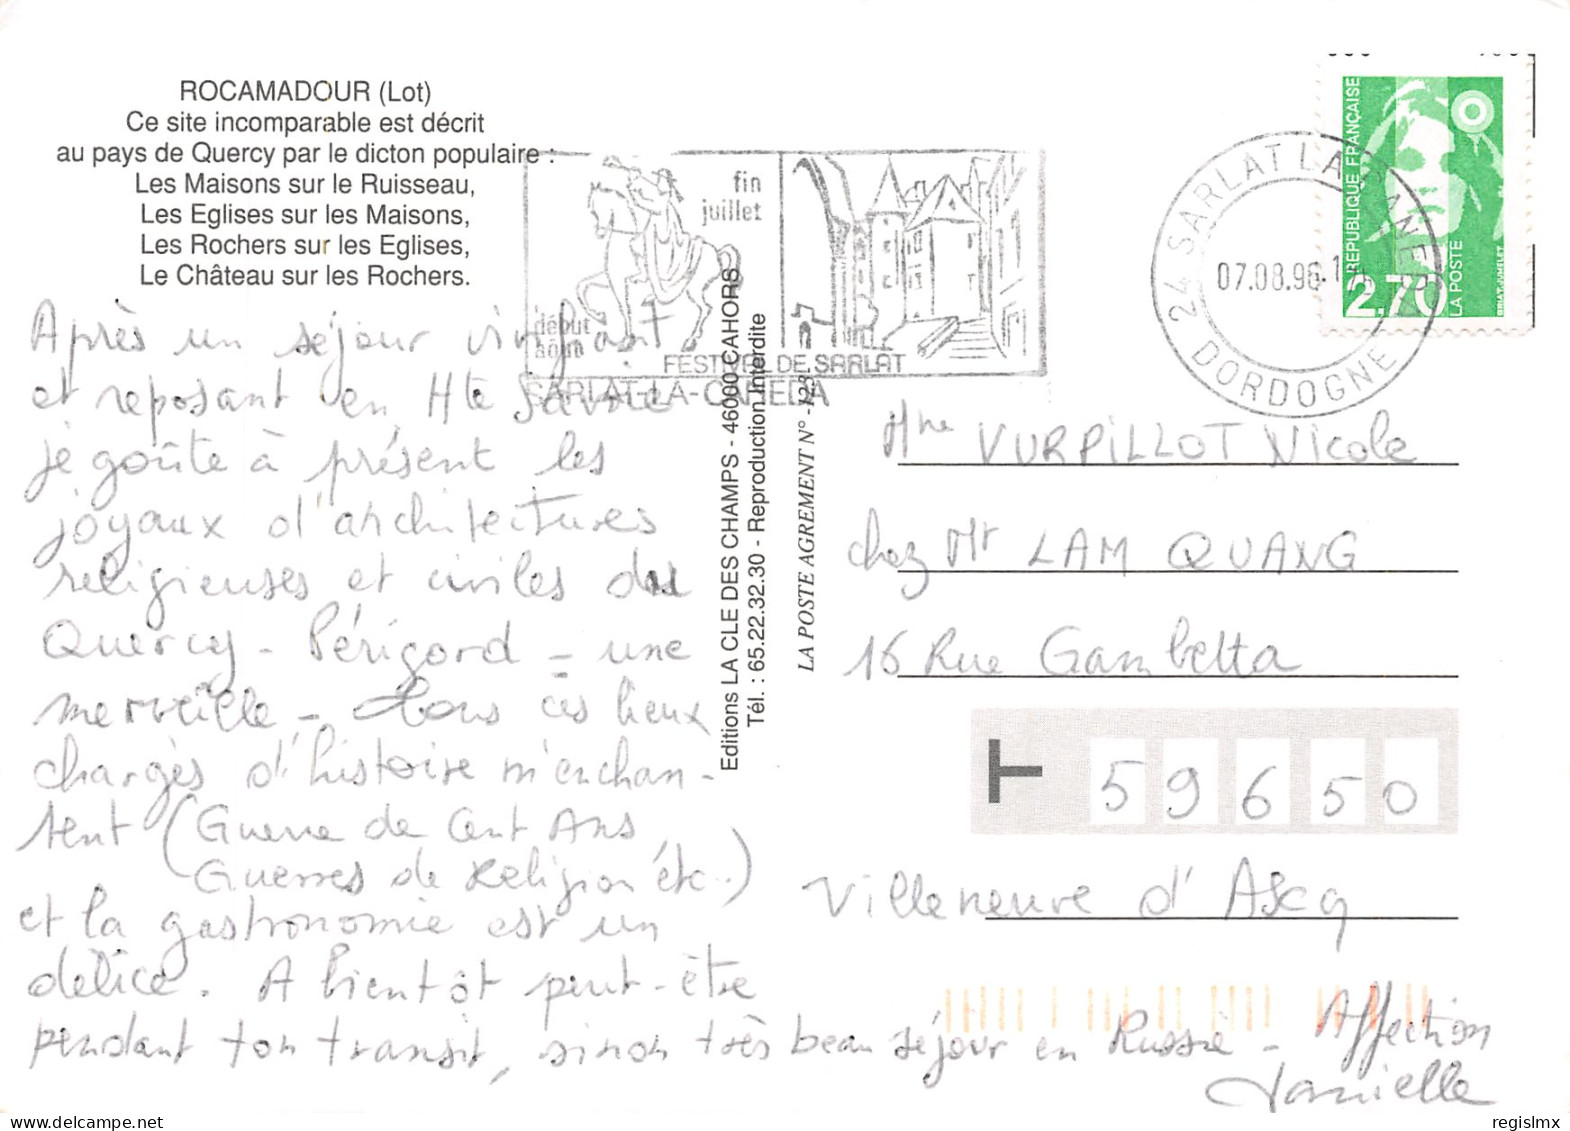 ROCAMADOUR (Lot)
Ce site incomparable est décrit
au pays de Quercy par le dicton populaire :
Les Maisons sur le Ruisseau,
Les Eglises sur les Maisons,
Les Rochers sur les Eglises,
Le Château sur les Rochers.
Après un séjour vivifiant
et reposant en Hte Savoie
je goûte à présent les
joyaux d'architectures
religieuses et civiles du
Quercy - Périgord - une
merveille - Tous ces lieux
chargés d'histoire m'enchan-
tent (Guerre de Cent Ans
Guerres de Religion etc..)
et la gastronomie est un
délice. A bientôt peut-être
pendant ton transit, sinon très beau séjour en Russie - Affection
Danielle
fin
juillet
début
août
FESTIVAL DE SARLAT
SARLAT-LA-CANEDA
Editions LA CLE DES CHAMPS - 46000 CAHORS
Tél. : 65.22.32.30 - Reproduction Interdite
LA POSTE AGREMENT N° -123
24 SARLAT LA CANEDA
07.08.96
DORDOGNE
REPUBLIQUE FRANÇAISE
2,70
LA POSTE
BRIAT-JUMELET
Mme VURPILLOT Nicole
chez Mr LAM QUANG
16 Rue Gambetta
59650
Villeneuve d'Ascq
regislmx